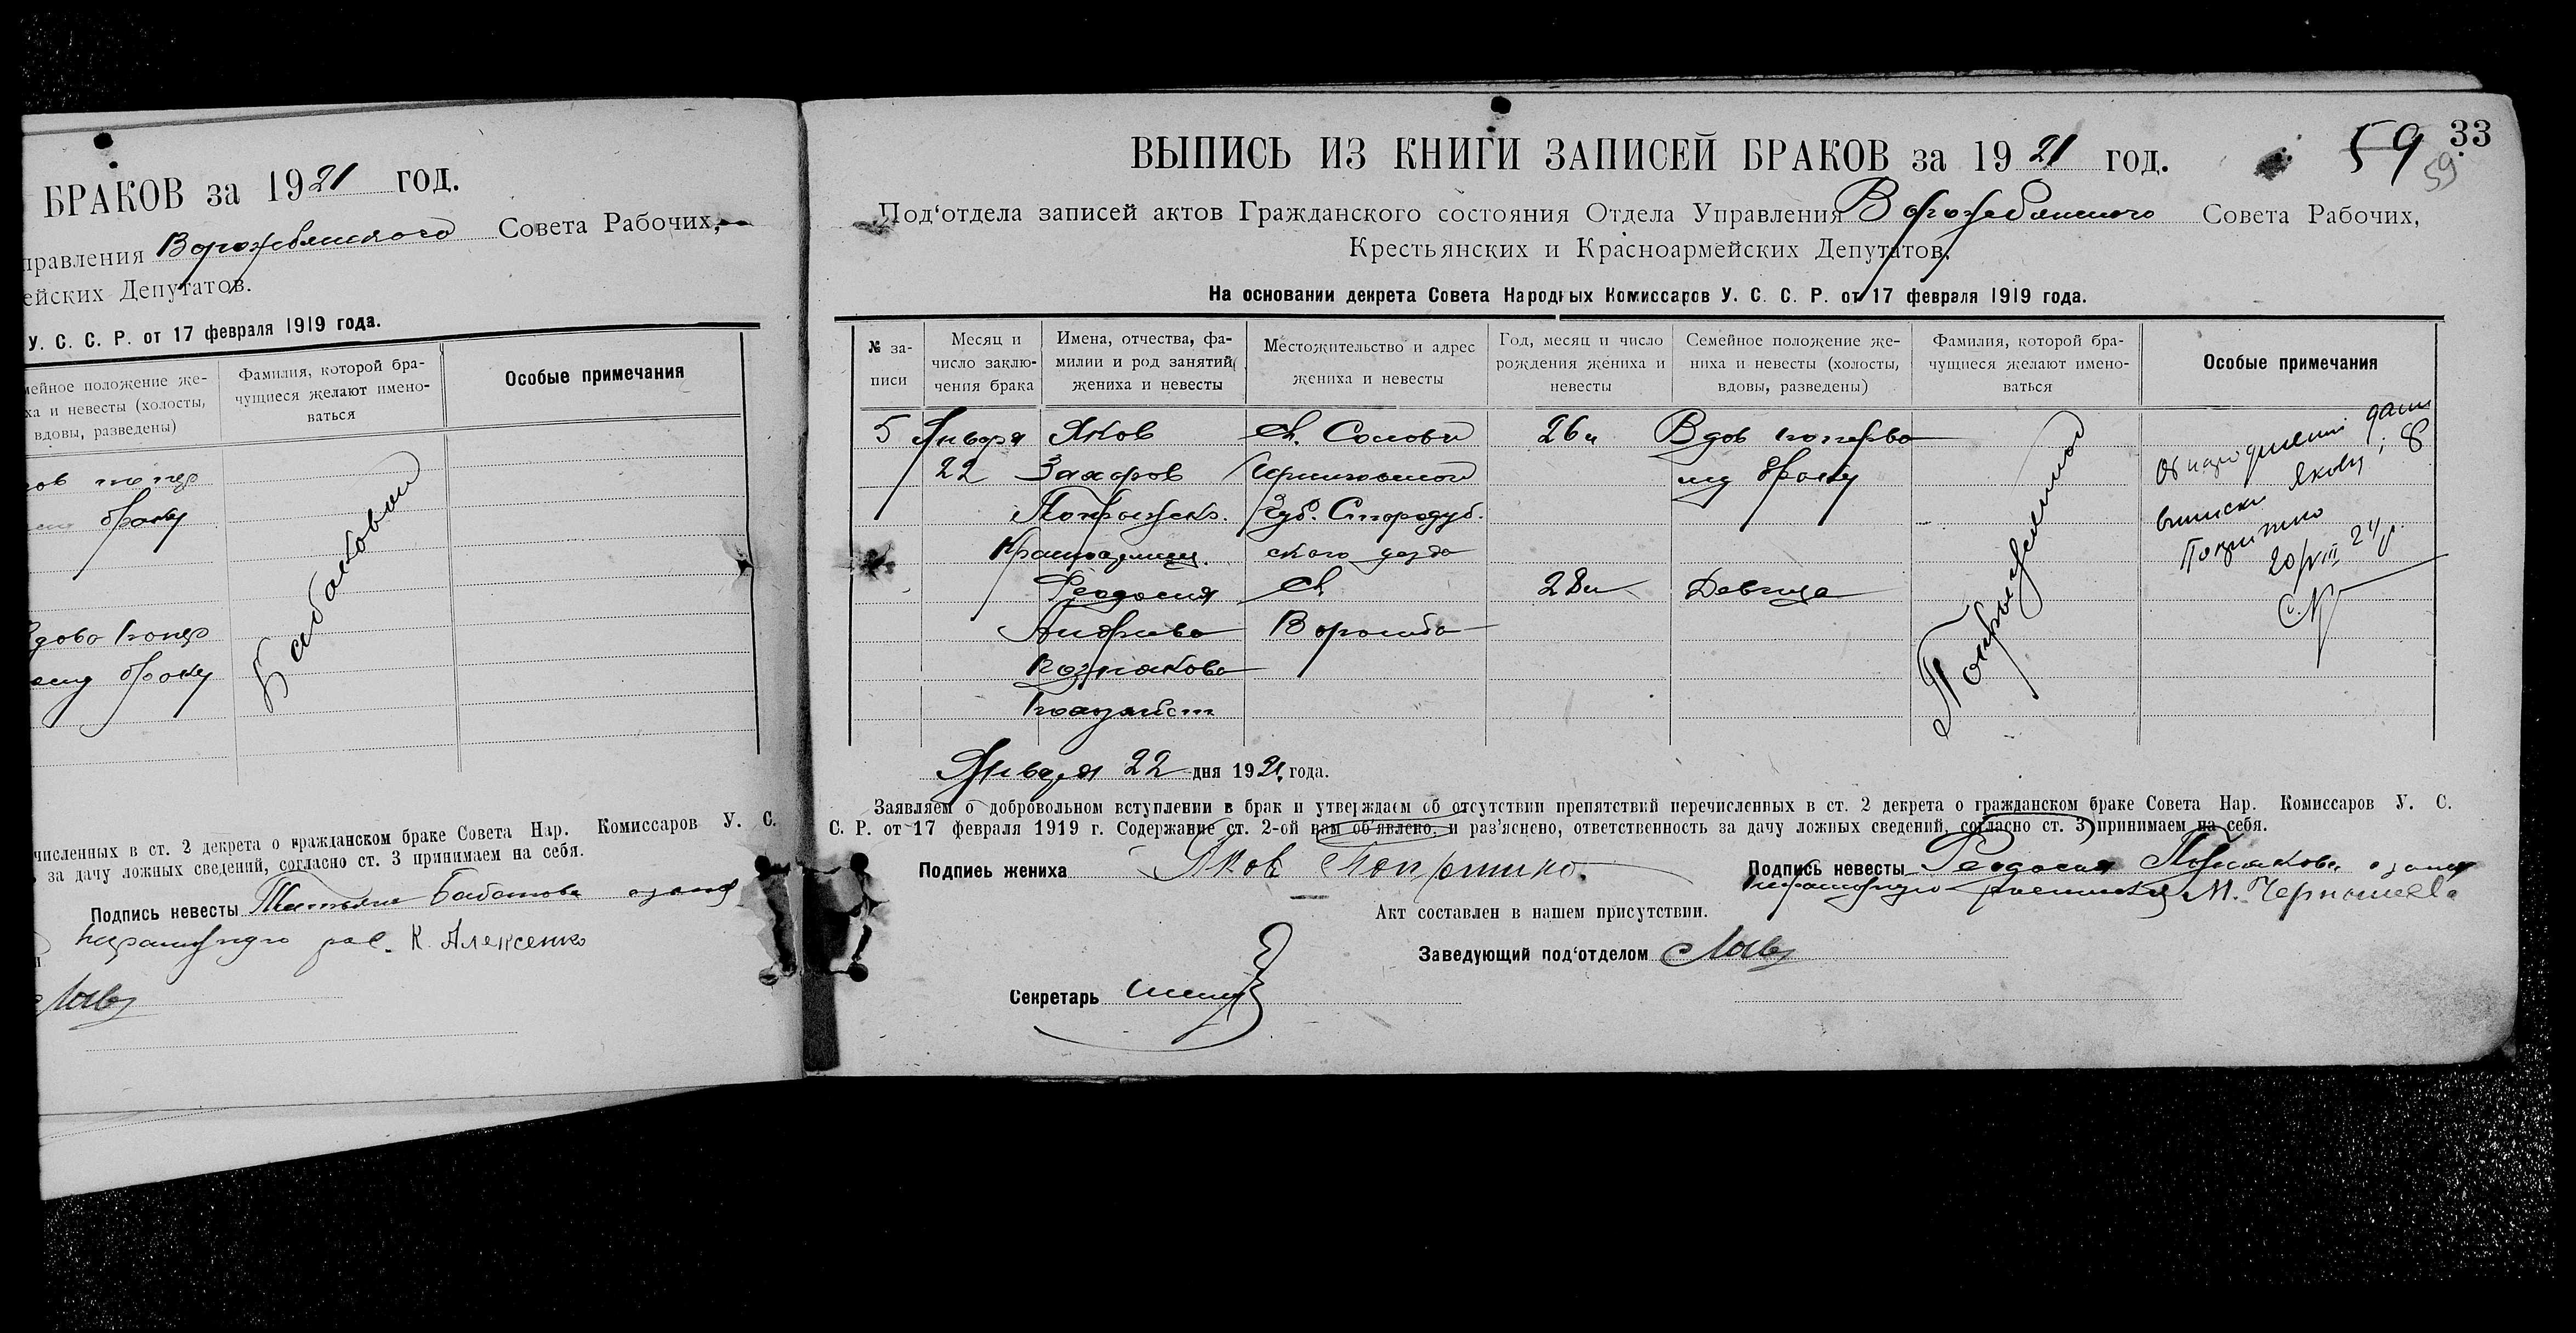 БРАКОВ за 1921 год.
правления Ворожбянского Совета Рабочих,
ейских Депутатов.
У. С. С. Р. от 17 февраля 1919 года.
мейное положение же-
ха и невесты (холосты,
вдовы, разведены)
Фамилия, которой бра-
чущиеся желают имено-
ваться
Особые примечания
браку
Бабаковыи
браку
численных в ст. 2 декрета о гражданском браке Совета Нар. Комиссаров У. С.
за дачу ложных сведений, согласно ст. 3 принимаем на себя.
Подпись невесты Татьяна Бабакова а за нея
неграмотную рас. К. Алексенко
ВЫПИСЬ ИЗ КНИГИ ЗАПИСЕЙ БРАКОВ за 1921 год.
59 33
59
Под'отдела записей актов Гражданского состояния Отдела Управления Ворожбянского Совета Рабочих,
Крестьянских и Красноармейских Депутатов.
На основании декрета Совета Народных Комиссаров У. С. С. Р. от 17 февраля 1919 года.
№ за-
писи
Месяц и
число заклю-
чения брака
Имена, отчества, фа-
милии и род занятий
жениха и невесты
Местожительство и адрес
жениха и невесты
Год, месяц и число
рождения жениха и
невесты
Семейное положение же-
ниха и невесты (холосты,
вдовы, разведены)
Фамилия, которой бра-
чущиеся желают имено-
ваться
Особые примечания
5 Января Яков с. Солови 26 л Вдов поперво
22 Захаров Черниговской му браку
Губ. Стародуб.
ского уезда
Феодосия с. 28 л Девица
Андреева Ворожба
Познякова
выписи Якову
20/VIII 24 г.
Января 22 дня 1921 года.
Заявляем о добровольном вступлении в брак и утверждаем об отсутствии препятствий перечисленных в ст. 2 декрета о гражданском браке Совета Нар. Комиссаров У. С.
С. Р. от 17 февраля 1919 г. Содержание ст. 2-ой нам об'явлено, и раз'яснено, ответственность за дачу ложных сведений, согласно ст. 3 принимаем на себя.
Подпись жениха Яков
Подпись невесты Феодосия Познякова а за нея
неграмотную расписался М. Чернышева
Акт составлен в нашем присутствии.
Заведующий под'отделом
Секретарь